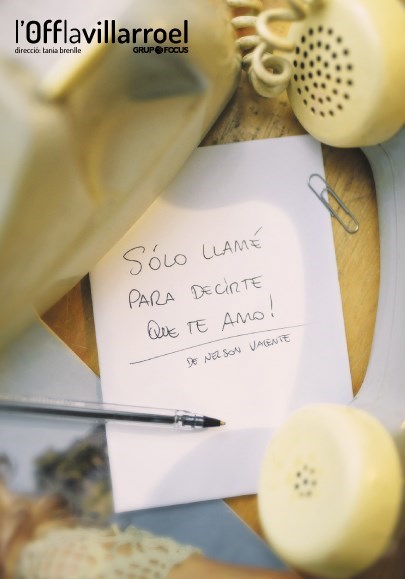 l'Offlavillarroel
direcció: tania brenlle GRUP FOCUS
SÓLO LLAMÉ
PARA DECIRTE
QUE TE AMO!
DE NELSON VALENTE